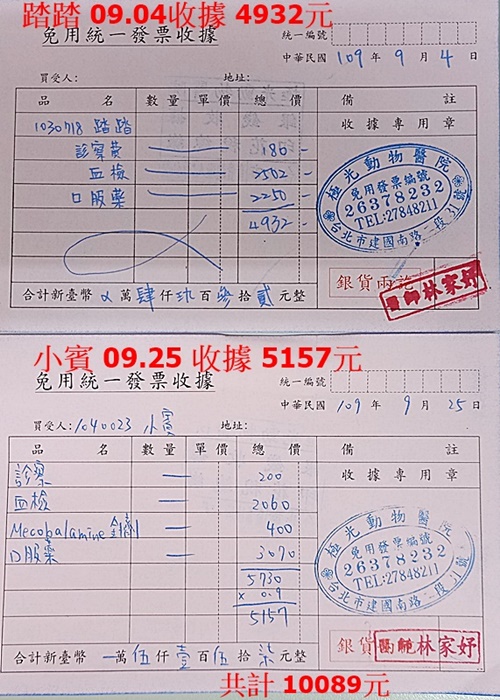 踏踏 09.04收據 4932元
免用統一發票收據
統一編號
中華民國 109 年 9 月 4 日
買受人: 地址:
品 名 數量 單價 總價 備 註
1030718 踏踏 收據專用章
診察費 一 180
血檢 一 2502
口服藥 一 2250
4932
極光動物醫院
免用發票編號
26378232
TEL:27848211
台北市建國南路一段31號
銀貨兩訖
醫師林家妤
合計新臺幣 萬肆仟玖百參拾貳元整
小賓 09.25 收據 5157元
免用統一發票收據
統一編號
中華民國 109 年 9 月 25 日
買受人: 1040023 小賓 地址:
品 名 數量 單價 總價 備 註
診察 一 200 收據專用章
血檢 一 2060
Mecobalamine 針劑 一 400
口服藥 一 3070
5730
x 0.9
5157
極光動物醫院
免用發票編號
26378232
TEL:27848211
台北市建國南路一段31號
銀貨
醫師林家妤
合計新臺幣 一萬伍仟壹百伍拾柒元整
共計 10089元